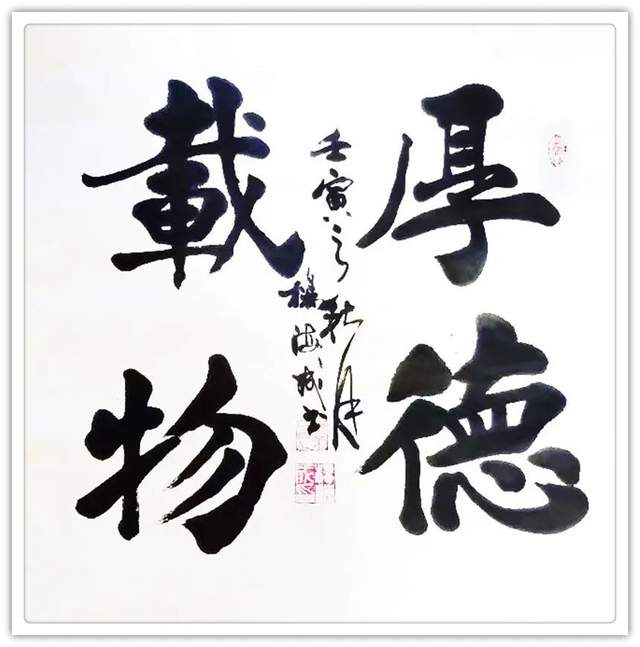 厚德
載物
壬寅之秋月
海
书